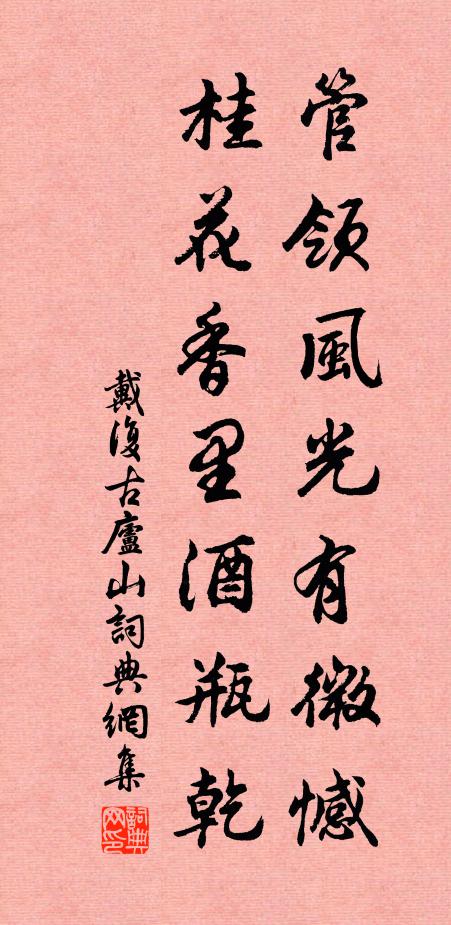 管領風光有微憾
桂花香里酒瓶乾
戴復古廬山詞典網集
詞典网印